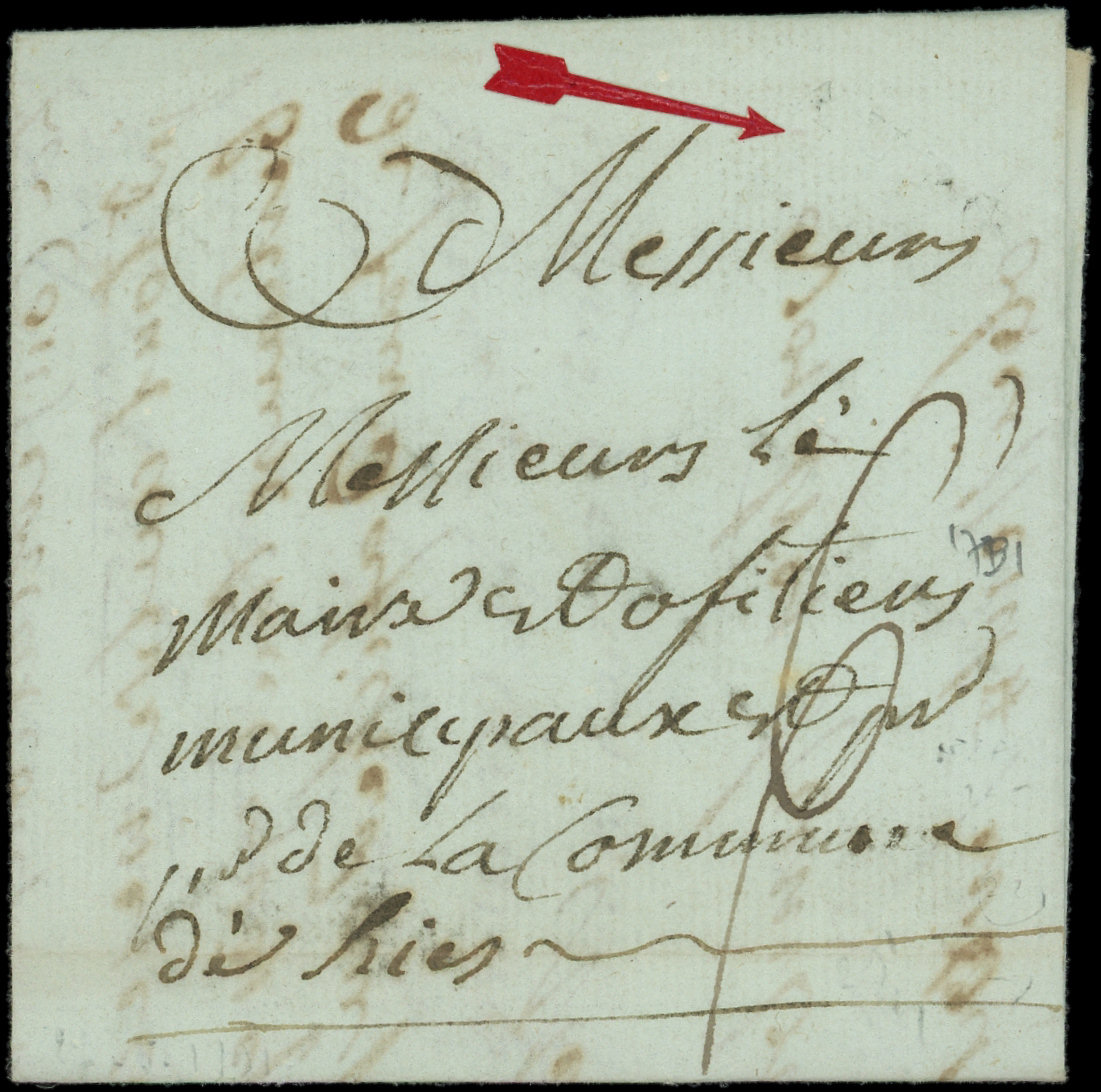 Messieurs
Messieurs Lè
Maire et ofitiers
municipaux et pr
de La Commune
dè Ries